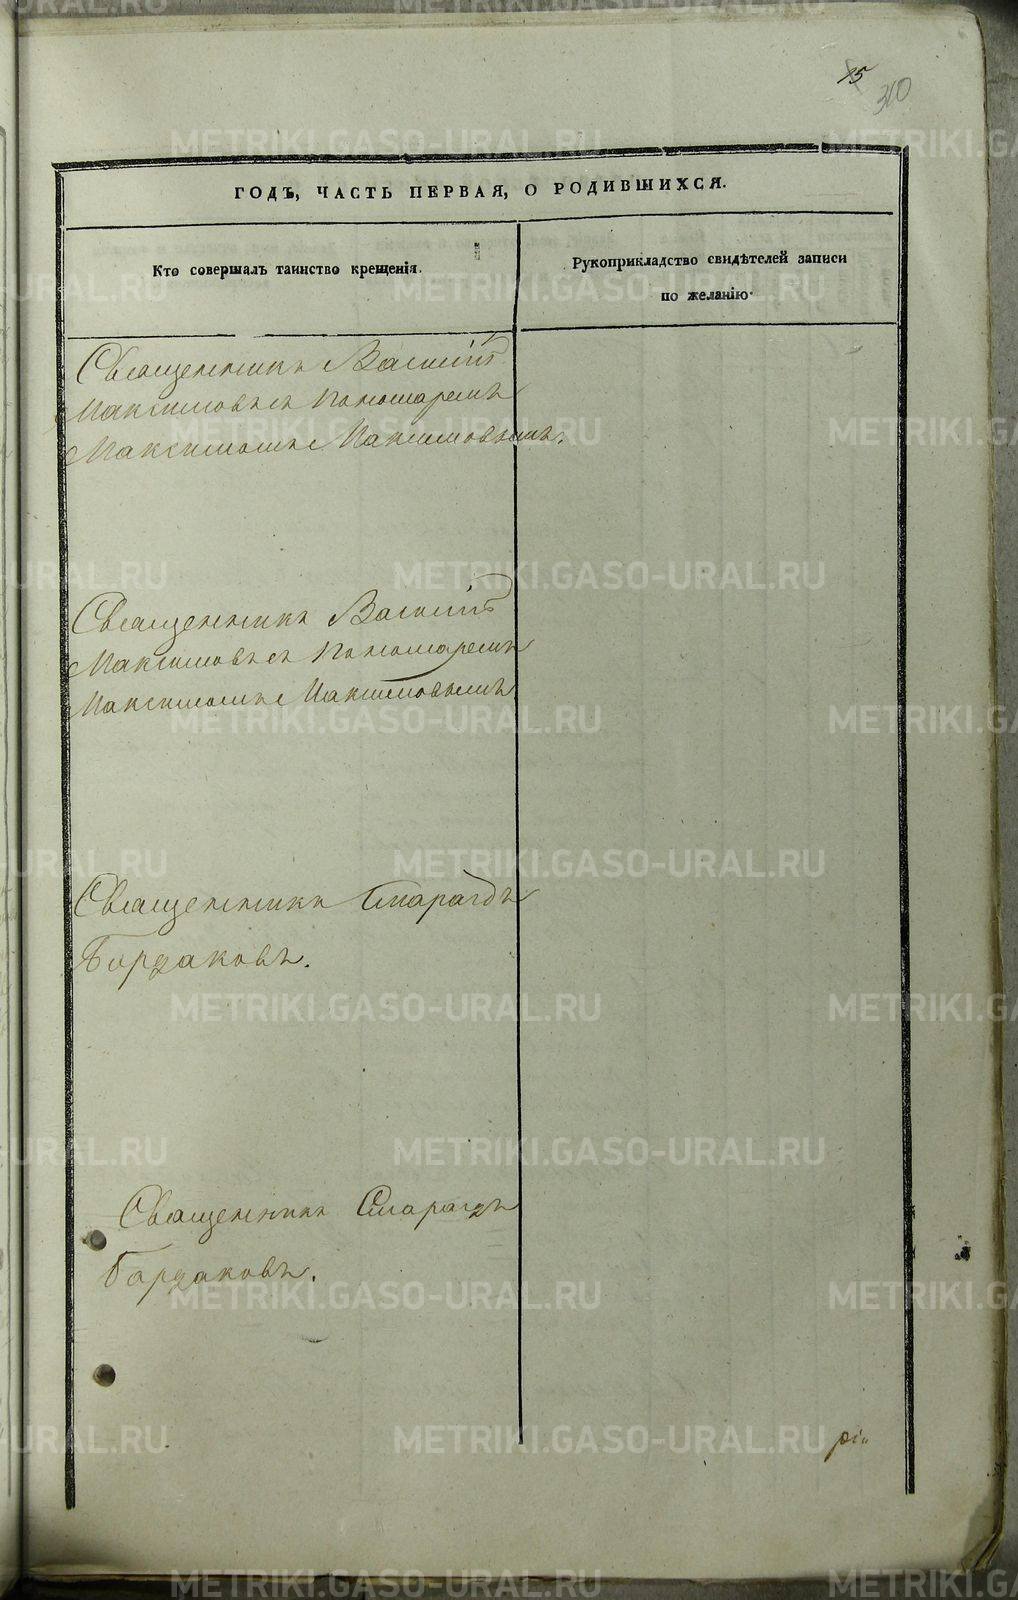 15
310
ГОДЪ, ЧАСТЬ ПЕРВАЯ, О РОДИВШИХСЯ.
Кто совершалъ таинство крещенія.
Рукоприкладство свидѣтелей записи
по желанію.
Священникъ Василій
Максимовъ съ Пономаремъ
Максимомъ Максимовымъ.
Священникъ Василій
Максимовъ съ Пономаремъ
Максимомъ Максимовымъ
Священникъ Смарагдъ
Бордаковъ.
Священникъ Смарагдъ
Бардаковъ.
METRIKI.GASO-URAL.RU